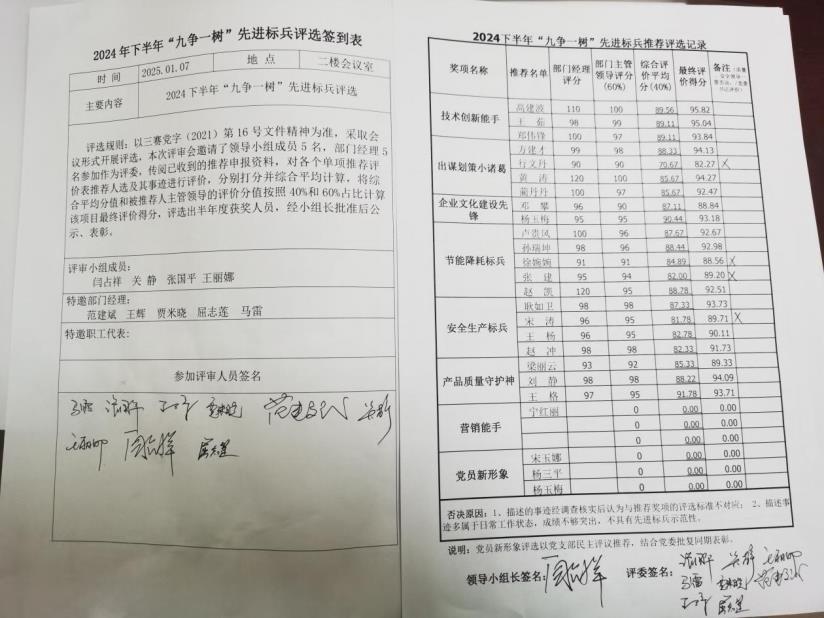 2024年下半年“九争一树”先进标兵评选签到表
时 间 2025.01.07 地 点 二楼会议室
主要内容 2024下半年“九争一树”先进标兵评选
评选规则：以三赛党字（2021）第16号文件精神为准，采取会
议形式开展评选，本次评审会邀请了领导小组成员5名，部门经理5
名参加作为评委，传阅已收到的推荐申报资料，对各个单项推荐评
价表推荐人选及其事迹进行评价，分别打分并综合平均计算，将综
合平均分值和被推荐人主管领导的评价分值按照40%和60%占比计算
该项目最终评价得分，评选出半年度获奖人员，经小组长批准后公
示、表彰。
评审小组成员：
闫占祥 关 静 张国平 王丽娜
特邀部门经理：
范建斌 王辉 贾米晓 屈志莲 马雷
特邀职工代表：
参加评审人员签名
2024下半年“九争一树”先进标兵推荐评选记录
奖项名称 推荐名单 部门经理评分 部门主管领导评分(60%) 综合评价平均分(40%) 最终评价得分 备注
技术创新能手 高建波 110 100 89.56 95.82
王 茹 98 99 89.11 95.04
郑伟锋 100 97 89.11 93.84
出谋划策小诸葛 方建才 99 98 88.33 94.13
行文丹 90 90 70.67 82.27 X
黄 涛 120 100 85.67 94.27
蔺丹丹 100 97 85.67 92.47
企业文化建设先锋 邓 攀 96 90 87.11 88.84
杨玉梅 95 95 90.44 93.18
节能降耗标兵 卢贵凤 100 96 87.67 92.67
孙瑞坤 98 96 88.44 92.98
徐婉婉 91 91 84.89 88.56 X
张 建 95 94 82.00 89.20 X
赵 凯 120 95 88.78 92.51
安全生产标兵 耿如卫 98 98 87.33 93.73
宋 涛 96 95 81.78 89.71 X
王 杨 96 95 82.78 90.11
赵 冲 98 98 82.33 91.73
产品质量守护神 梁丽云 93 92 85.33 89.33
刘 静 98 98 88.22 94.09
王 格 97 95 91.78 93.71
营销能手 宁红丽 0 0.00 0.00
0 0.00 0.00
0 0.00 0.00
党员新形象 宋玉娜 0 0.00 0.00
杨三平 0 0.00 0.00
杨玉梅 0 0.00 0.00
否决原因：1、描述的事迹经调查核实后认为与推荐奖项的评选标准不对应； 2、描述事
迹多属于日常工作状态，成绩不够突出，不具有先进标兵示范性。
说明：党员新形象评选以党支部民主评议推荐，结合党委批复同期表彰。
领导小组长签名： 评委签名：